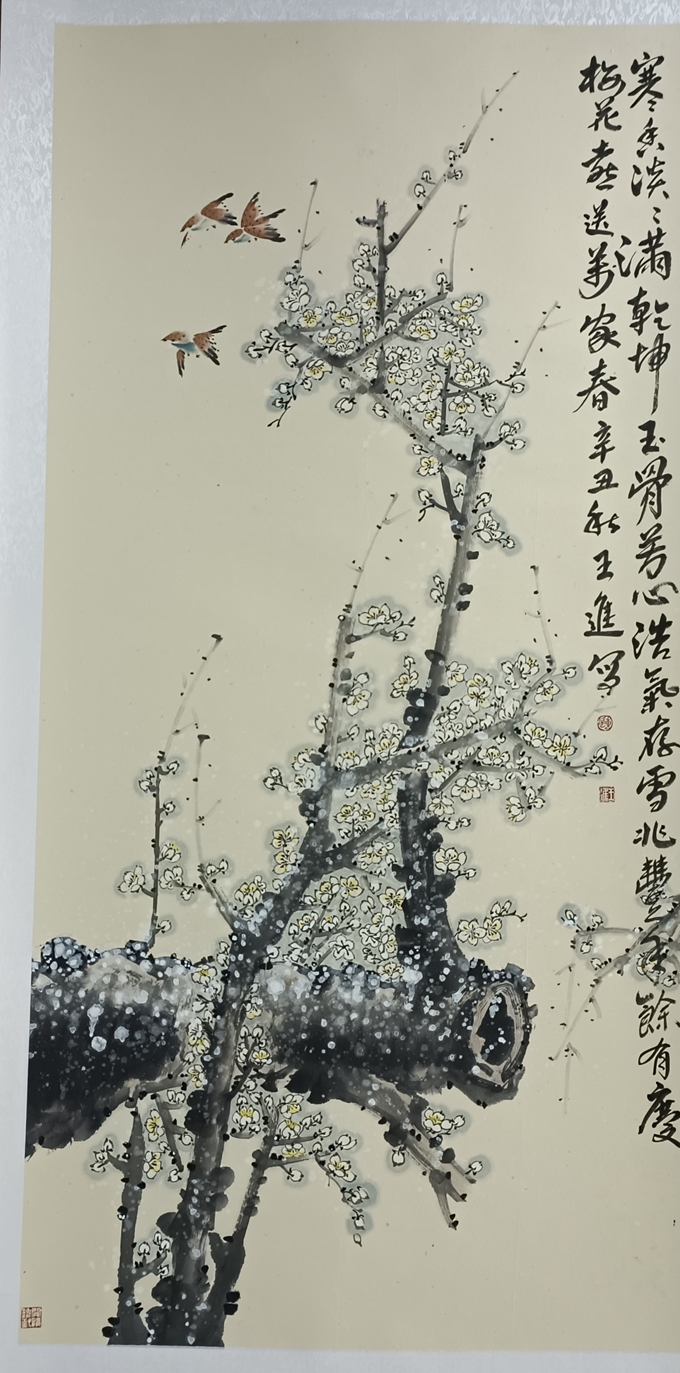 寒香淡淡满乾坤玉骨芳心浩氣存雪兆豐年餘有慶
梅花喜送萬家春辛丑秋王進寫